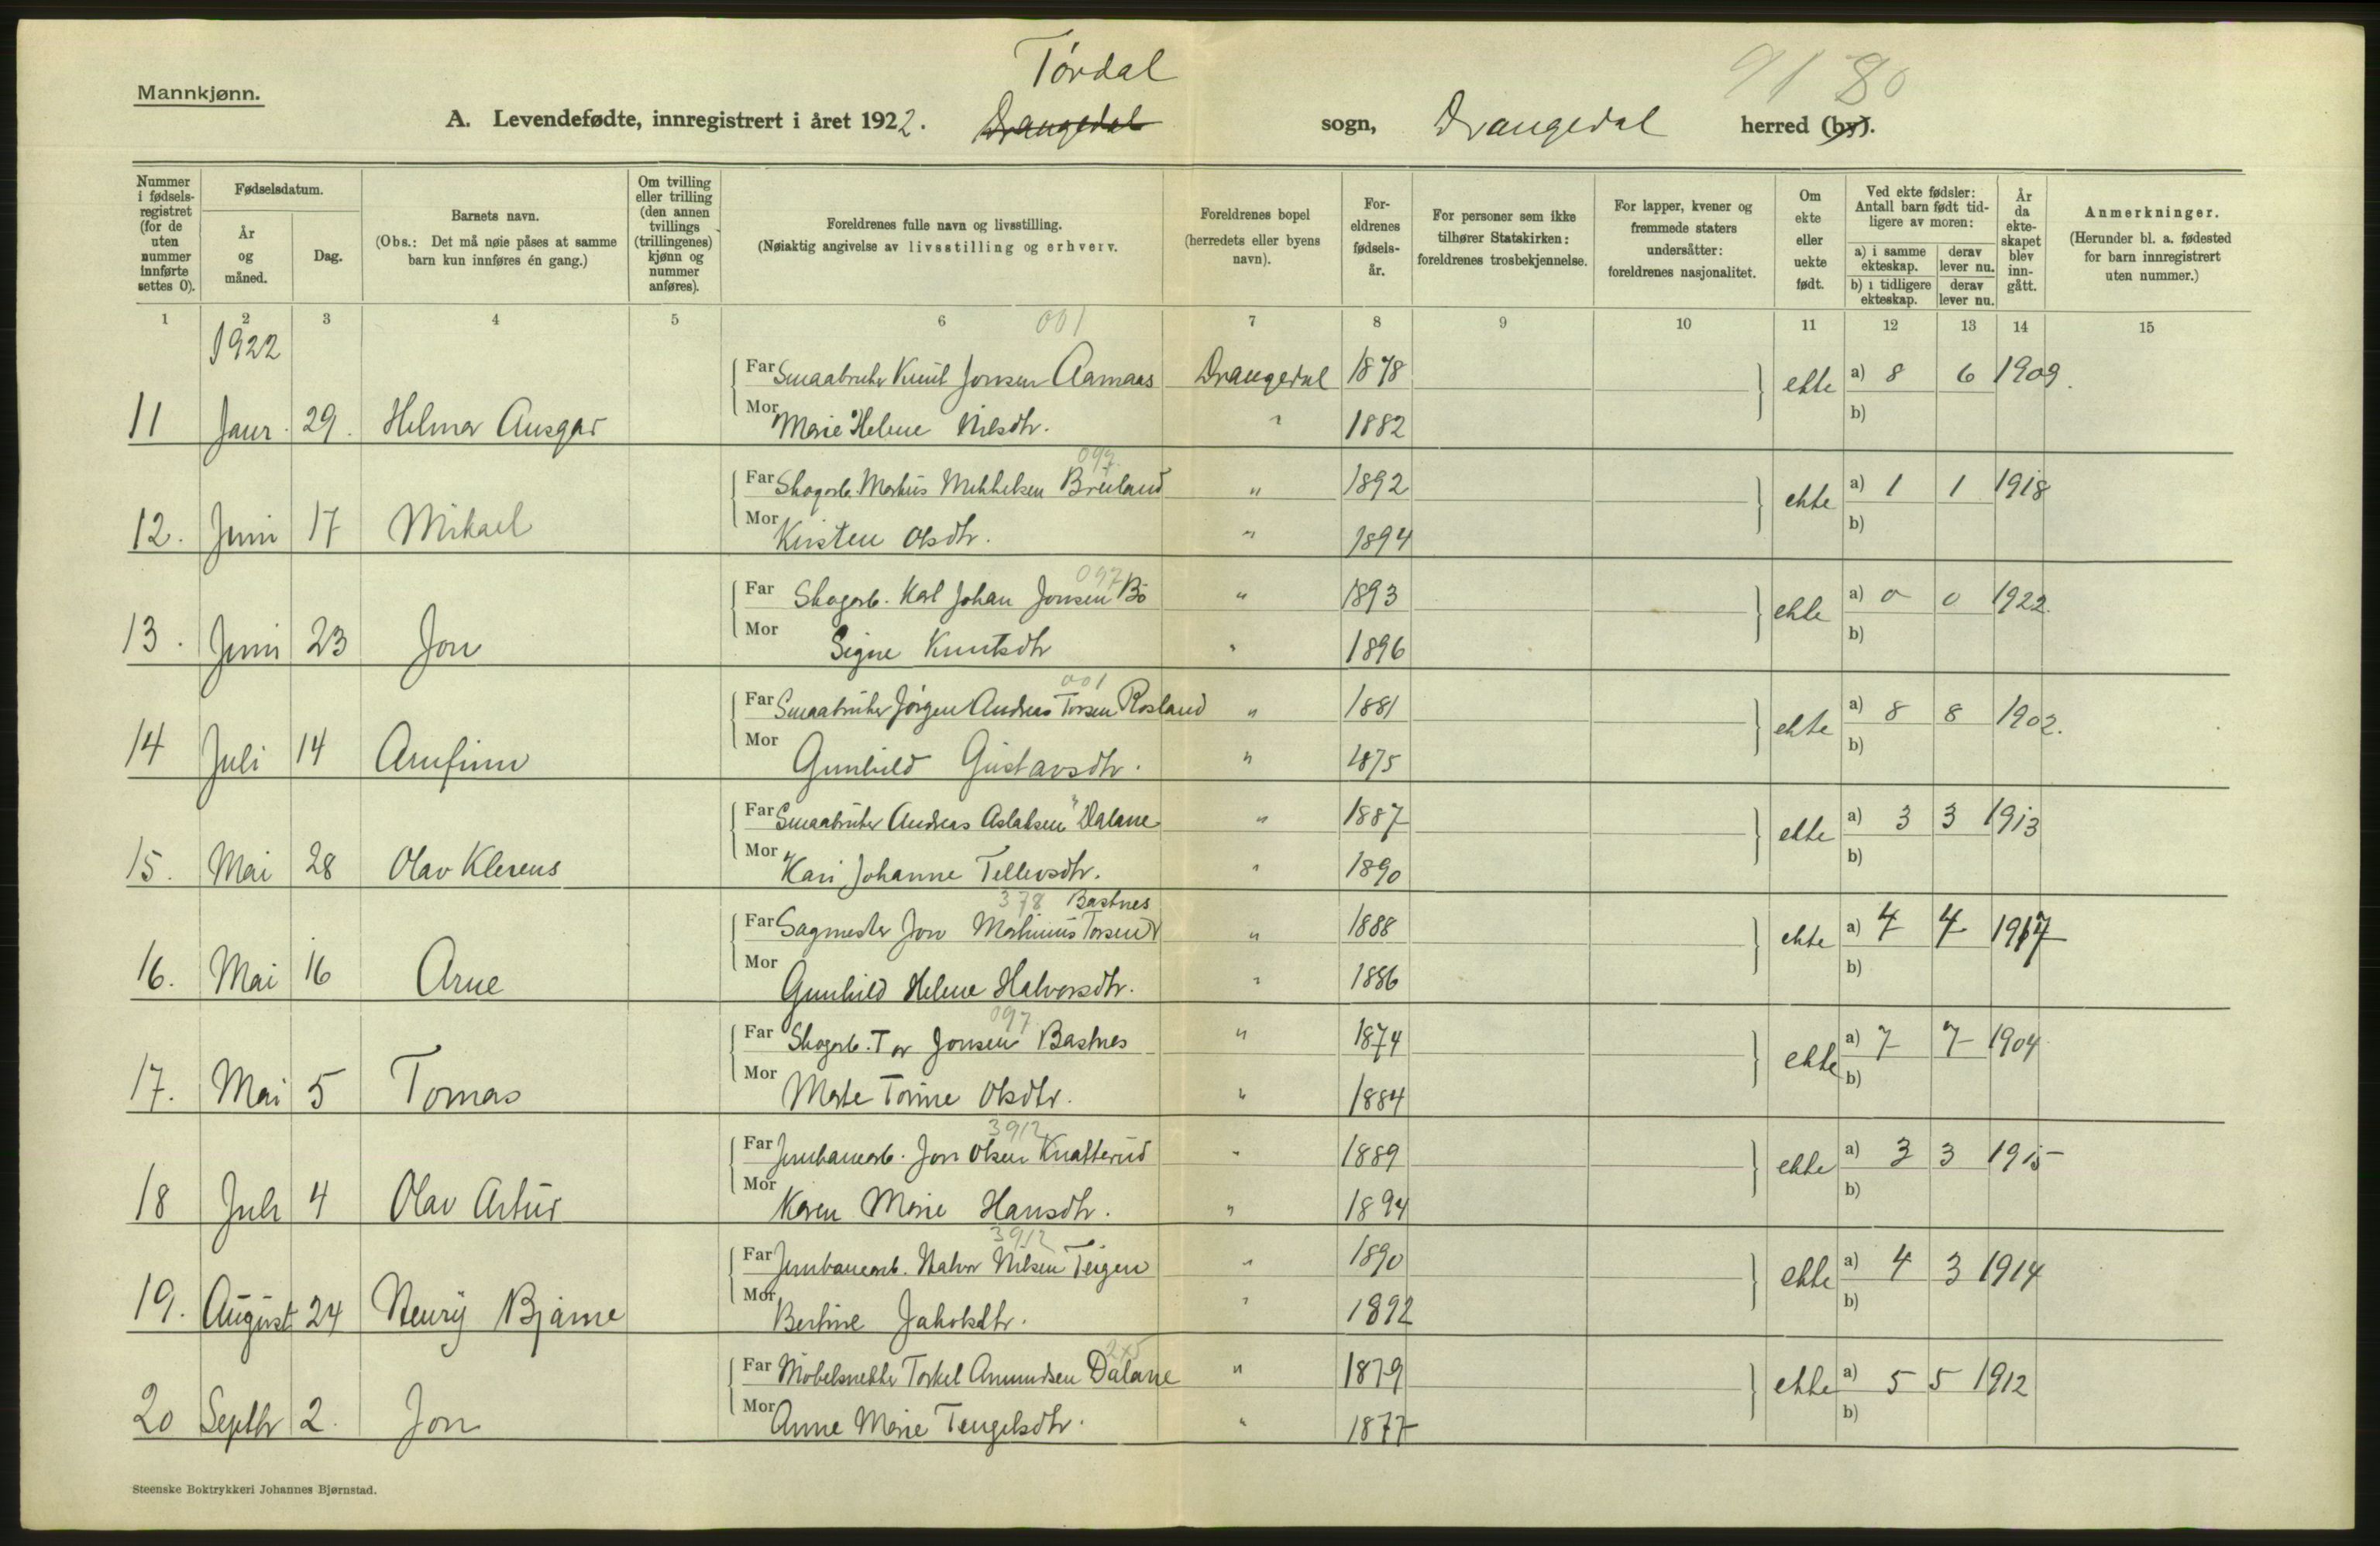 Mannkjønn.
Tórdal
9180
A. Levendefødte, innregistrert i året 1922. Drangedal sogn, Drangedal herred (by).
Nummer i fødsels-registret (for de uten nummer innførte settes 0).
Fødselsdatum.
År og måned.
Dag.
Barnets navn.
(Obs.: Det må nøie påses at samme barn kun innføres én gang.)
Om tvilling eller trilling (den annen tvillings (trillingenes) kjønn og nummer anføres).
Foreldrenes fulle navn og livsstilling.
(Nøiaktig angivelse av livsstilling og erhverv.
Foreldrenes bopel (herredets eller byens navn).
For-eldrenes fødsels-år.
For personer som ikke tilhører Statskirken: foreldrenes trosbekjennelse.
For lapper, kvener og fremmede staters undersåtter: foreldrenes nasjonalitet.
Om ekte eller uekte født.
Ved ekte fødsler: Antall barn født tid-ligere av moren:
a) i samme ekteskap.
derav lever nu.
b) i tidligere ekteskap.
derav lever nu.
År da ekte-skapet blev inn-gått.
Anmerkninger.
(Herunder bl. a. fødested for barn innregistrert uten nummer.)
1 2 3 4 5 6 7 8 9 10 11 12 13 14 15
1922
001
Far Smaabruker Knut Jonsen Aamaas Drangedal 1878 ekte a) 8 6 1909.
11 Janr. 29. Helmer Ansgar Mor Marie Helene Nilsdtr. " 1882 b)
097
Far Skogarb. Markus Mikkelsen Breiland " 1892 ekte a) 1 1 1918
12. Juni 17 Mikael Mor Kirsten Olsdtr. " 1894 b)
097
Far Skogarb. Karl Johan Jonsen Bö " 1893 ekte a) 0 0 1922.
13. Juni 23 Jon Mor Signe Knutsdtr " 1896 b)
001
Far Smaabruker Jörgen Andreas Torsen Rosland " 1881 ekte a) 8 8 1902.
14 Juli 14 Arnfinn Mor Gunhild Gustavsdtr. " 1875 b)
Far Smaabruker Andreas Aslaksen Dalane " 1887 ekte a) 3 3 1913
15. Mai 28 Olav Klerens Mor Kari Johanne Tellevsdtr. " 1890 b)
378 Bastnes
Far Sagmester Jon Martinius Torsen " 1888 ekte a) 4 4 1917
16. Mai 16 Arne Mor Gunhild Helene Halvorsdtr. " 1886 b)
097
Far Skogarb. Tor Jonsen Bastnes " 1874 ekte a) 7 7 1904
17. Mai 5 Tomas Mor Marte Torine Olsdtr. " 1884 b)
3912
Far Jernbanearb. Jon Olsen Knatterud " 1889 ekte a) 3 3 1915
18 Juli 4 Olav Artur Mor Karen Marie Hansdtr. " 1894 b)
3912
Far Jernbanearb. Halvor Nilsen Teigen " 1890 ekte a) 4 3 1914
19. August 24 Henry Bjarne Mor Bertine Jakobsdtr. " 1892 b)
Far Möbelsnekker Torkel Amundsen Dalane " 1879 ekte a) 5 5 1912
20 Septbr 2. Jon Mor Anne Marie Tengelsdtr. " 1877 b)
Steenske Boktrykkeri Johannes Bjørnstad.